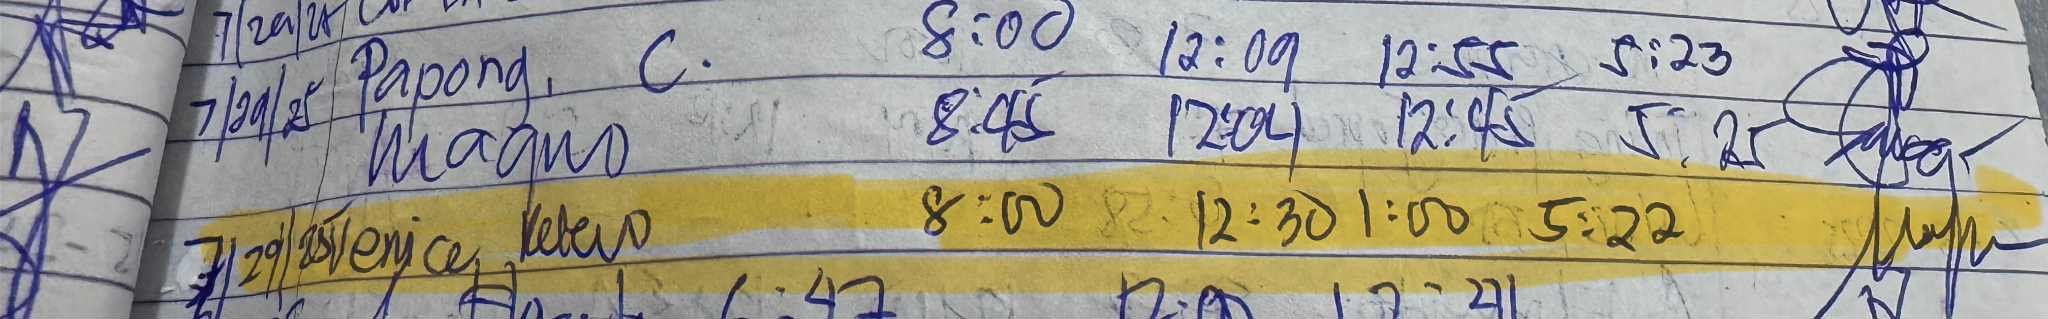 7/29/25
Papong, C. 8:00 12:09 12:55 5:23
7/29/25 Magno 8:45 12:04 12:45 5:25
7/29/25 Venice, 8:00 12:30 1:00 5:22